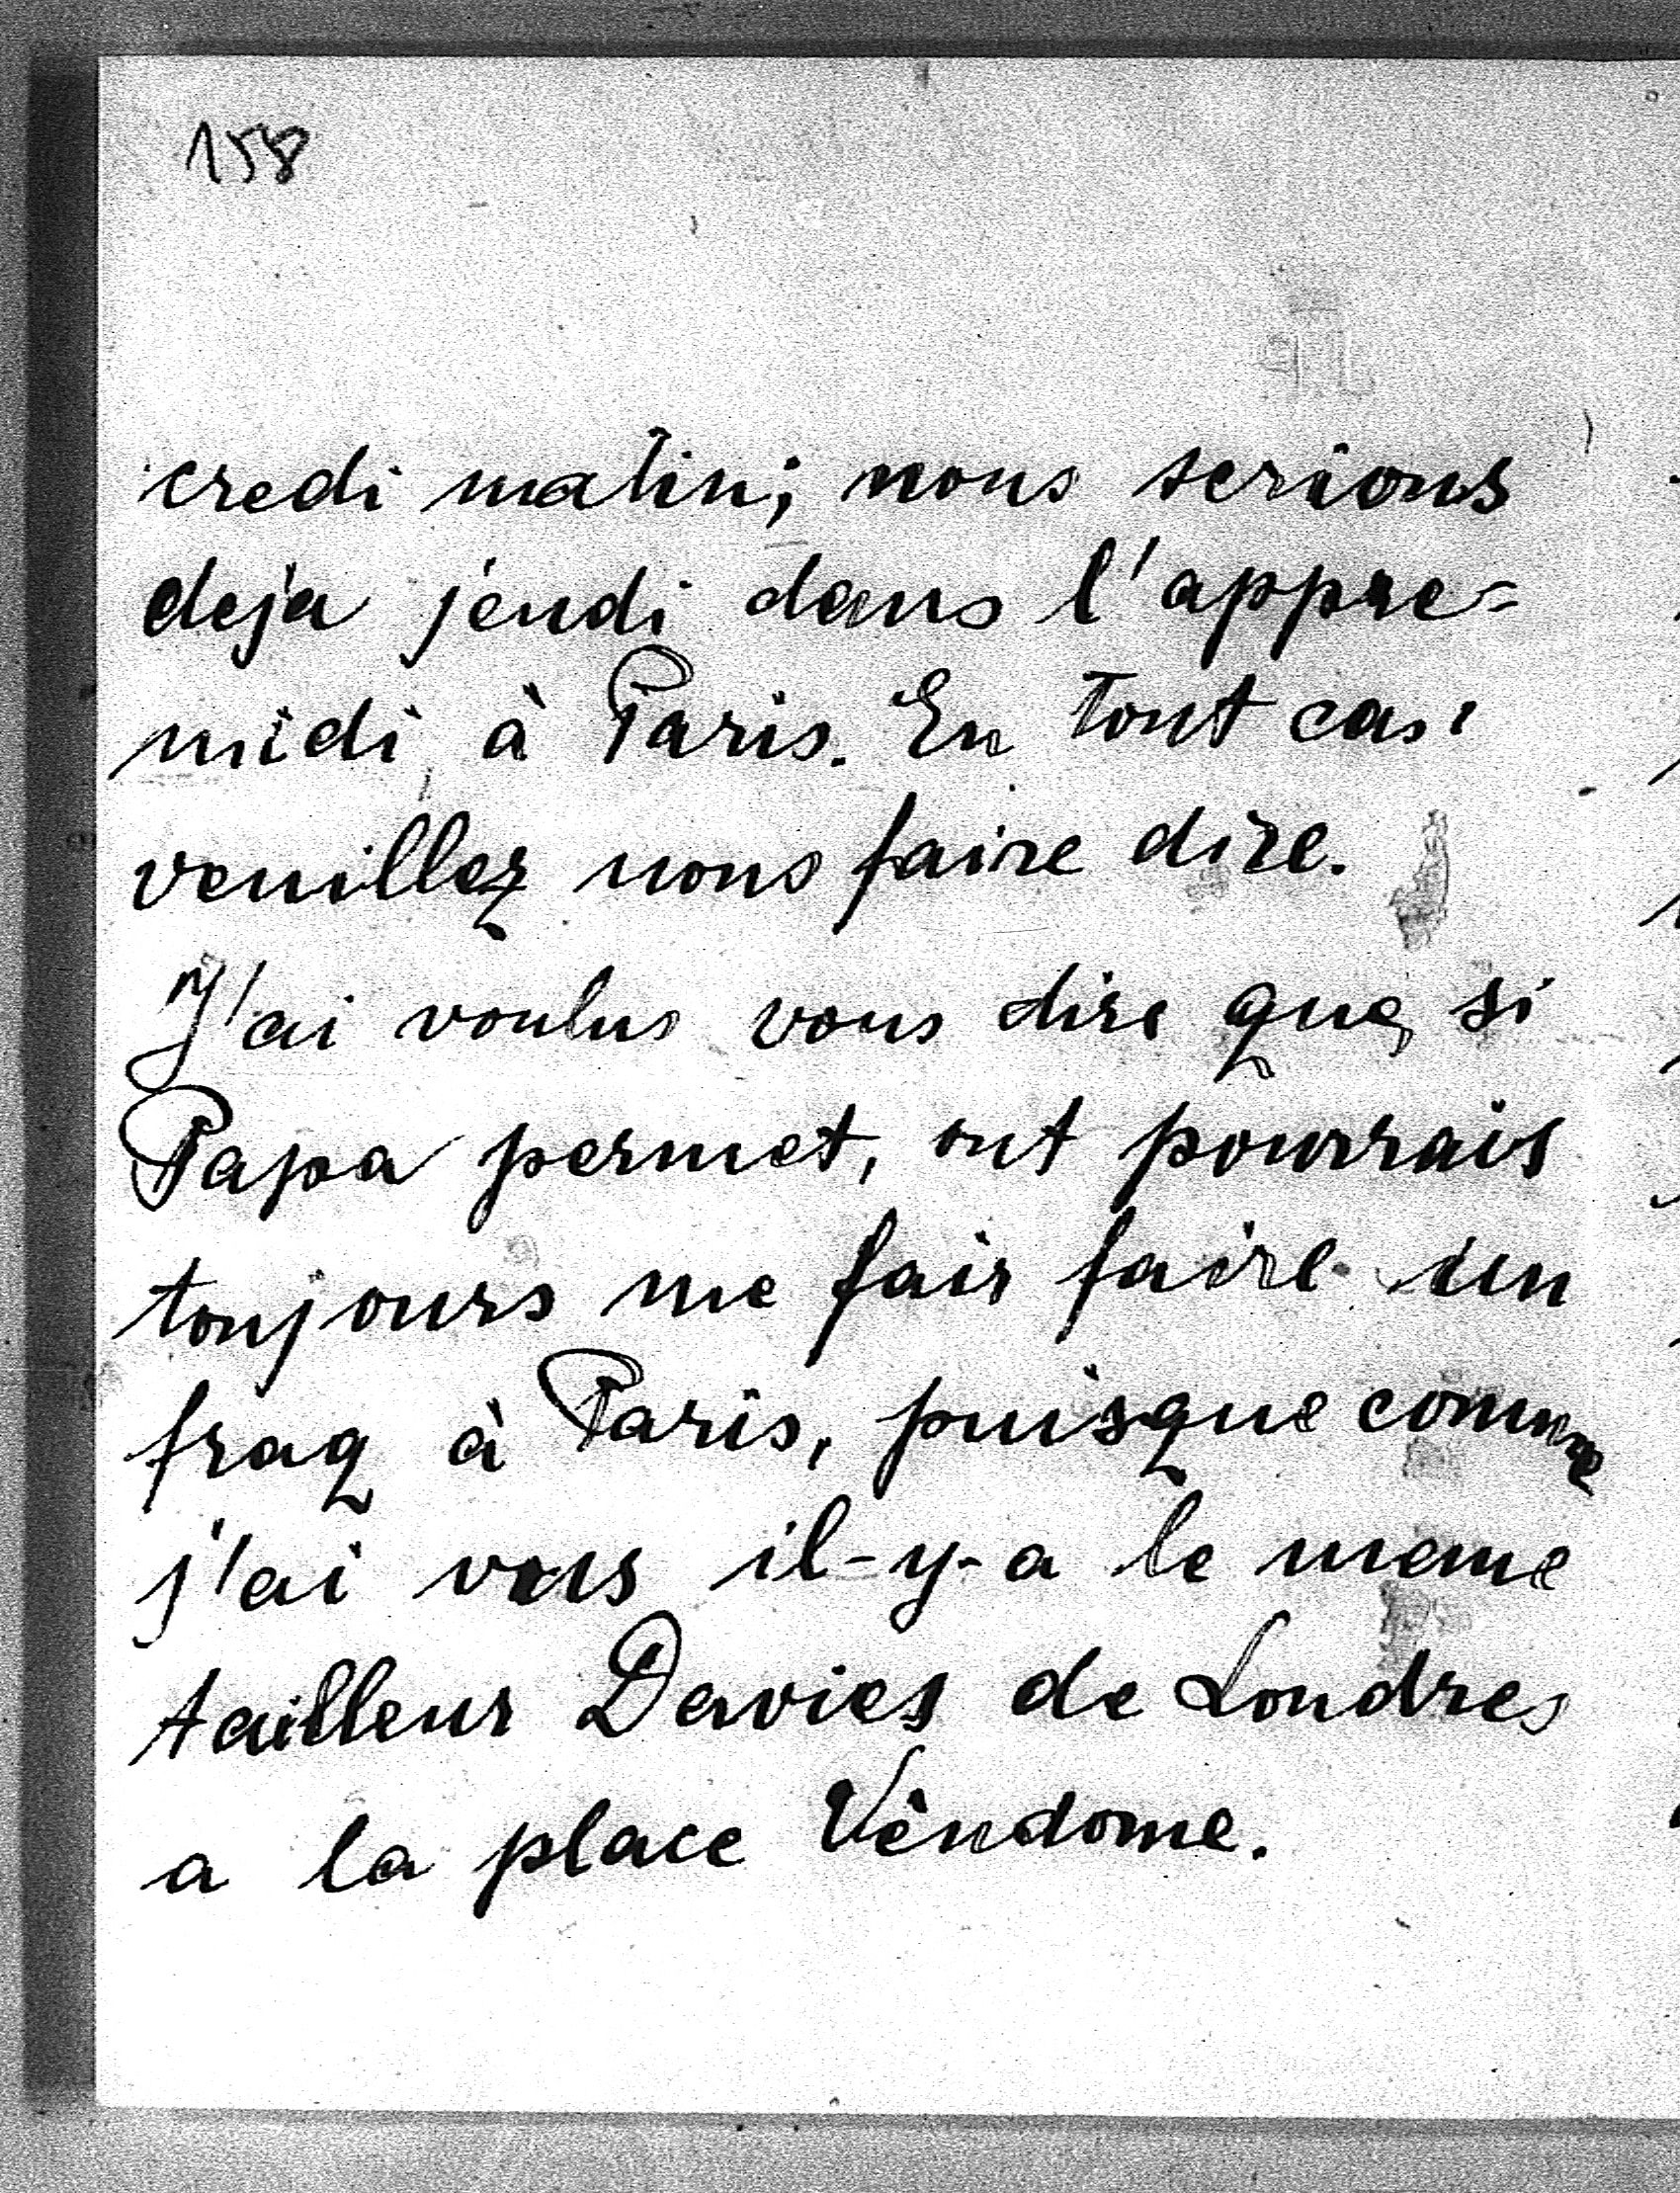 158
credi matin; nous serions
deja jeudi dans l'appre=
midi à Paris. En tout cas
veuillez nous faire dire.
J'ai voulus vous dire que, si
Papa permet, ont pourrais
toujours me fair faire un
fraq à Paris, puisque comme
j'ai vus il-y-a le meme
tailleur Davies de Londres
a la place Vèndome.